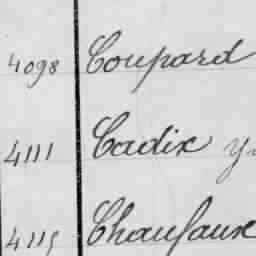 4098 Coupard
4111 Cadix
4115 Chaufaux